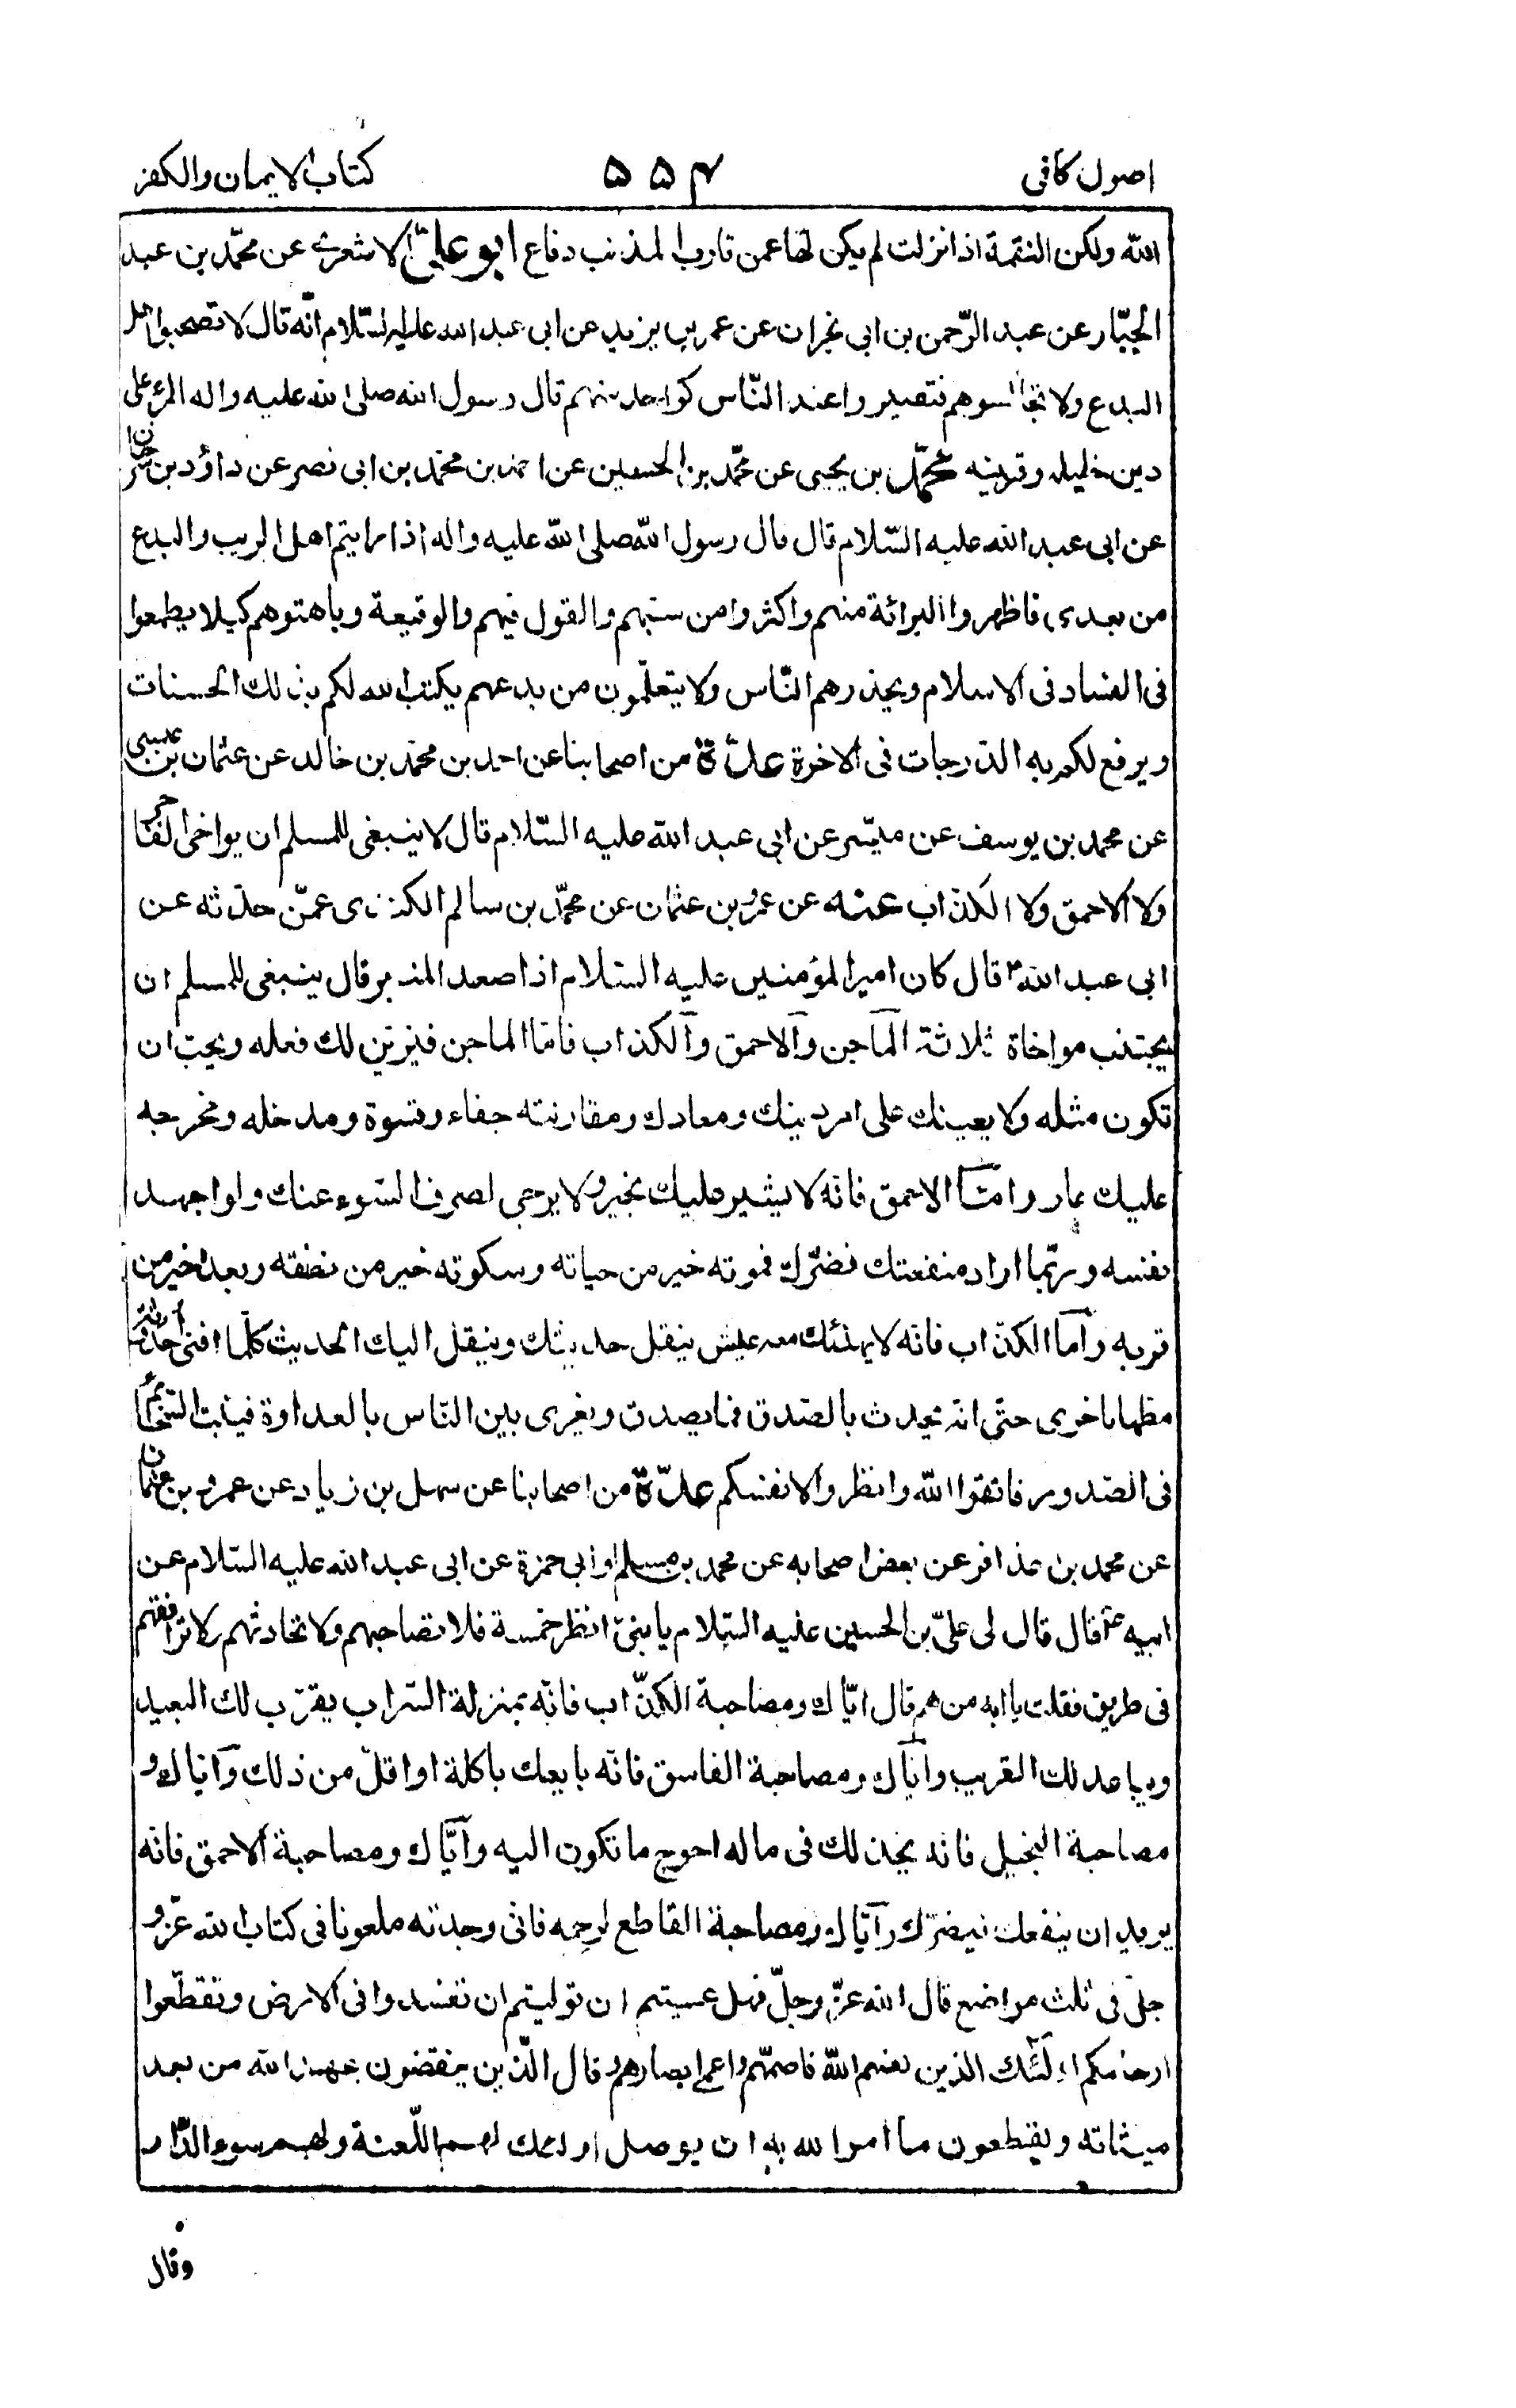 اصول كافى ۵۵۴ كتاب الايمان والكفر
الله ولكن النقمة اذا نزلت لم يكن لها عمن قارب المذنب دفاع ابو علىّ الاشعرى عن محمّد بن عبد
الجبّار عن عبد الرّحمن بن ابى نجران عن عمر بن يزيد عن ابى عبد الله عليه السّلام انّه قال لا تصحبوا اهل
البدع ولا تجالسوهم فتصيروا عند النّاس كواحد منهم قال رسول الله صلى الله عليه واله المرء على
دين خليله وقرينه محمّد بن يحيى عن محمّد بن الحسين عن احمد بن محمّد بن ابى نصر عن داؤد بن سرحان
عن ابى عبد الله عليه السّلام قال قال رسول الله صلى الله عليه واله اذا رايتم اهل الريب والبدع
من بعدى فاظهروا البرائة منهم واكثروا من سبّهم والقول فيهم والوقيعة وباهتوهم كيلا يطمعوا
فى الفساد فى الاسلام ويحذرهم النّاس ولا يتعلّمون من بدعهم يكتب الله لكم بذلك الحسنات
ويرفع لكم به الدّرجات فى الاخرة عدّة من اصحابنا عن احمد بن محمّد بن خالد عن عثمان بن عيسى
عن محمد بن يوسف عن ميسّر عن ابى عبد الله عليه السّلام قال لا ينبغى للمسلم ان يواخى الفاجر
ولا الاحمق ولا الكذّاب عنه عن عمرو بن عثمان عن محمّد بن سالم الكندى عمّن حدّثه عن
ابى عبد الله ع قال كان امير المؤمنين عليه السّلام اذا صعد المنبر قال ينبغى للمسلم ان
يجتنب مواخاة ثلاثة الماجن والاحمق والكذاب فامّا الماجن فيزيّن لك فعله ويحبّ ان
تكون مثله ولا يعينك على امر دينك ومعادك ومقارنته جفاء وقسوة ومدخله ومخرجه
عليك عار وامّا الاحمق فانّه لا يشير عليك بخير ولا يرجى لصرف السّوء عنك ولو اجهد
نفسه وربّما اراد منفعتك فضرّك فموته خير من حياته وسكوته خير من نطقه وبعده خير من
قربه وامّا الكذّاب فانّه لا يهنئك معه عيش ينقل حديثك وينقل اليك الحديث كلّما افنى احدوثة
مطها باخرى حتّى انّه يحدث بالصّدق فما يصدق ويغرى بين النّاس بالعداوة فينبت السّخائم
فى الصّدور فاتقوا الله وانظروا لانفسكم عدّة من اصحابنا عن سهل بن زياد عن عمرو بن عثمان
عن محمد بن عذافر عن بعض اصحابه عن محمد بن مسلم او ابى حمزة عن ابى عبد الله عليه السّلام عن
ابيه ع قال قال لى علىّ بن الحسين عليه السّلام يا بنىّ انظر خمسة فلا تصاحبهم ولا تحادثهم ولا ترافقهم
فى طريق فقلت يا ابه من هم قال ايّاك ومصاحبة الكذّاب فانّه بمنزلة السّراب يقرّب لك البعيد
ويباعد لك القريب وايّاك ومصاحبة الفاسق فانّه بايعك باكلة او اقلّ من ذلك وايّاك و
مصاحبة البخيل فانّه يخذلك فى ماله احوج ما تكون اليه وايّاك ومصاحبة الاحمق فانّه
يريد ان ينفعك فيضرّك وايّاك ومصاحبة القاطع لرحمه فانّى وجدته ملعونا فى كتاب الله عزّ و
جلّ فى ثلث مواضع قال الله عزّ وجلّ فهل عسيتم ان توليتم ان تفسدوا فى الارض وتقطّعوا
ارحامكم اولئك الذين لعنهم الله فاصمّهم واعمى ابصارهم وقال الّذين ينقضون عهد الله من بعد
ميثاقه ويقطعون ما امر الله به ان يوصل اولئك لهم اللّعنة ولهم سوء الدّار
وقال